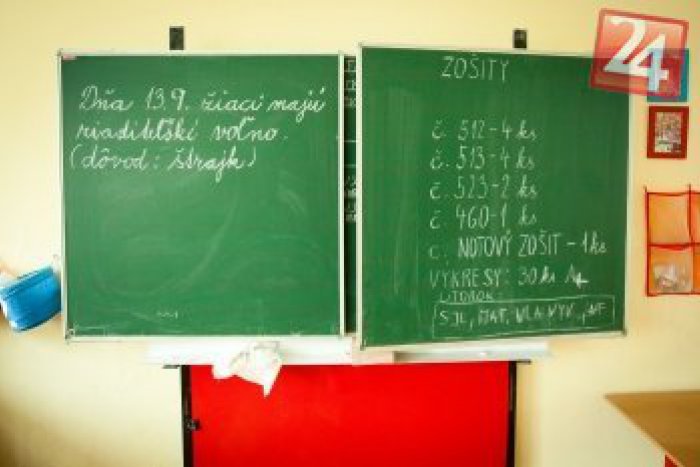 Dňa 13.9. žiaci majú
riaditeľské voľno.
(dôvod: štrajk)
ZOŠITY
č. 512-4 ks
č. 513-4 ks
č. 523-2 ks
č. 460-1 ks
č. NOTOVÝ ZOŠIT - 1 ks
VÝKRESY: 30 ks A4
UTOROK:
SJL, MAT, VLA, VYV,
24